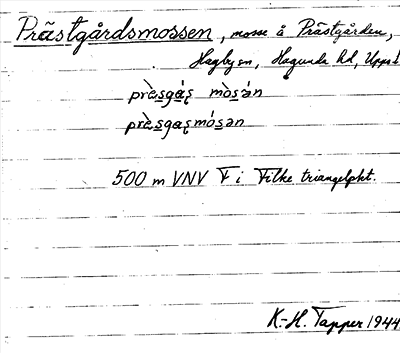 Prästgårdsmossen, mosse å Prästgården,
Hagby sn, Hagunda hd, Uppsl
prὲsgáʂ mòsán
prὲsgaʂmósən
500 m VNV F i Filke triangelpkt.
K.-H. Tapper 1944